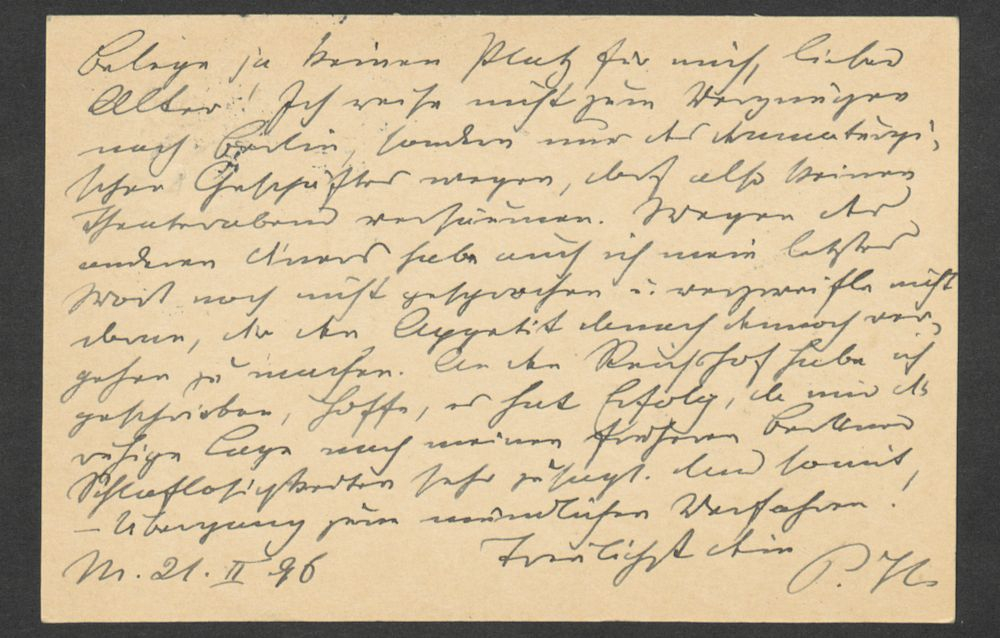 Belege ja keinen Platz für mich, lieber
Alter! Ich reise nicht zum Vergnügen
nach Berlin, sondern nur des dramaturgi-
schen Geschäftes wegen, darf also keinen
Theaterabend versäumen. Wegen des
anderen Diners habe auch ich mein letztes
Wort noch nicht gesprochen u. verzweifle nicht
daran, dir den Appetit danach dennoch ver-
gehen zu machen. An den Reichshof habe ich
geschrieben, hoffe, es hat Erfolg, da mir die
ruhige Lage nach meinen früheren Berliner
Schlaflosigkeiten sehr zusagt. Und somit,
– Übergang zum mündlichen Verfahren!
Treulichst Dein
P. H.
M. 21. II 96